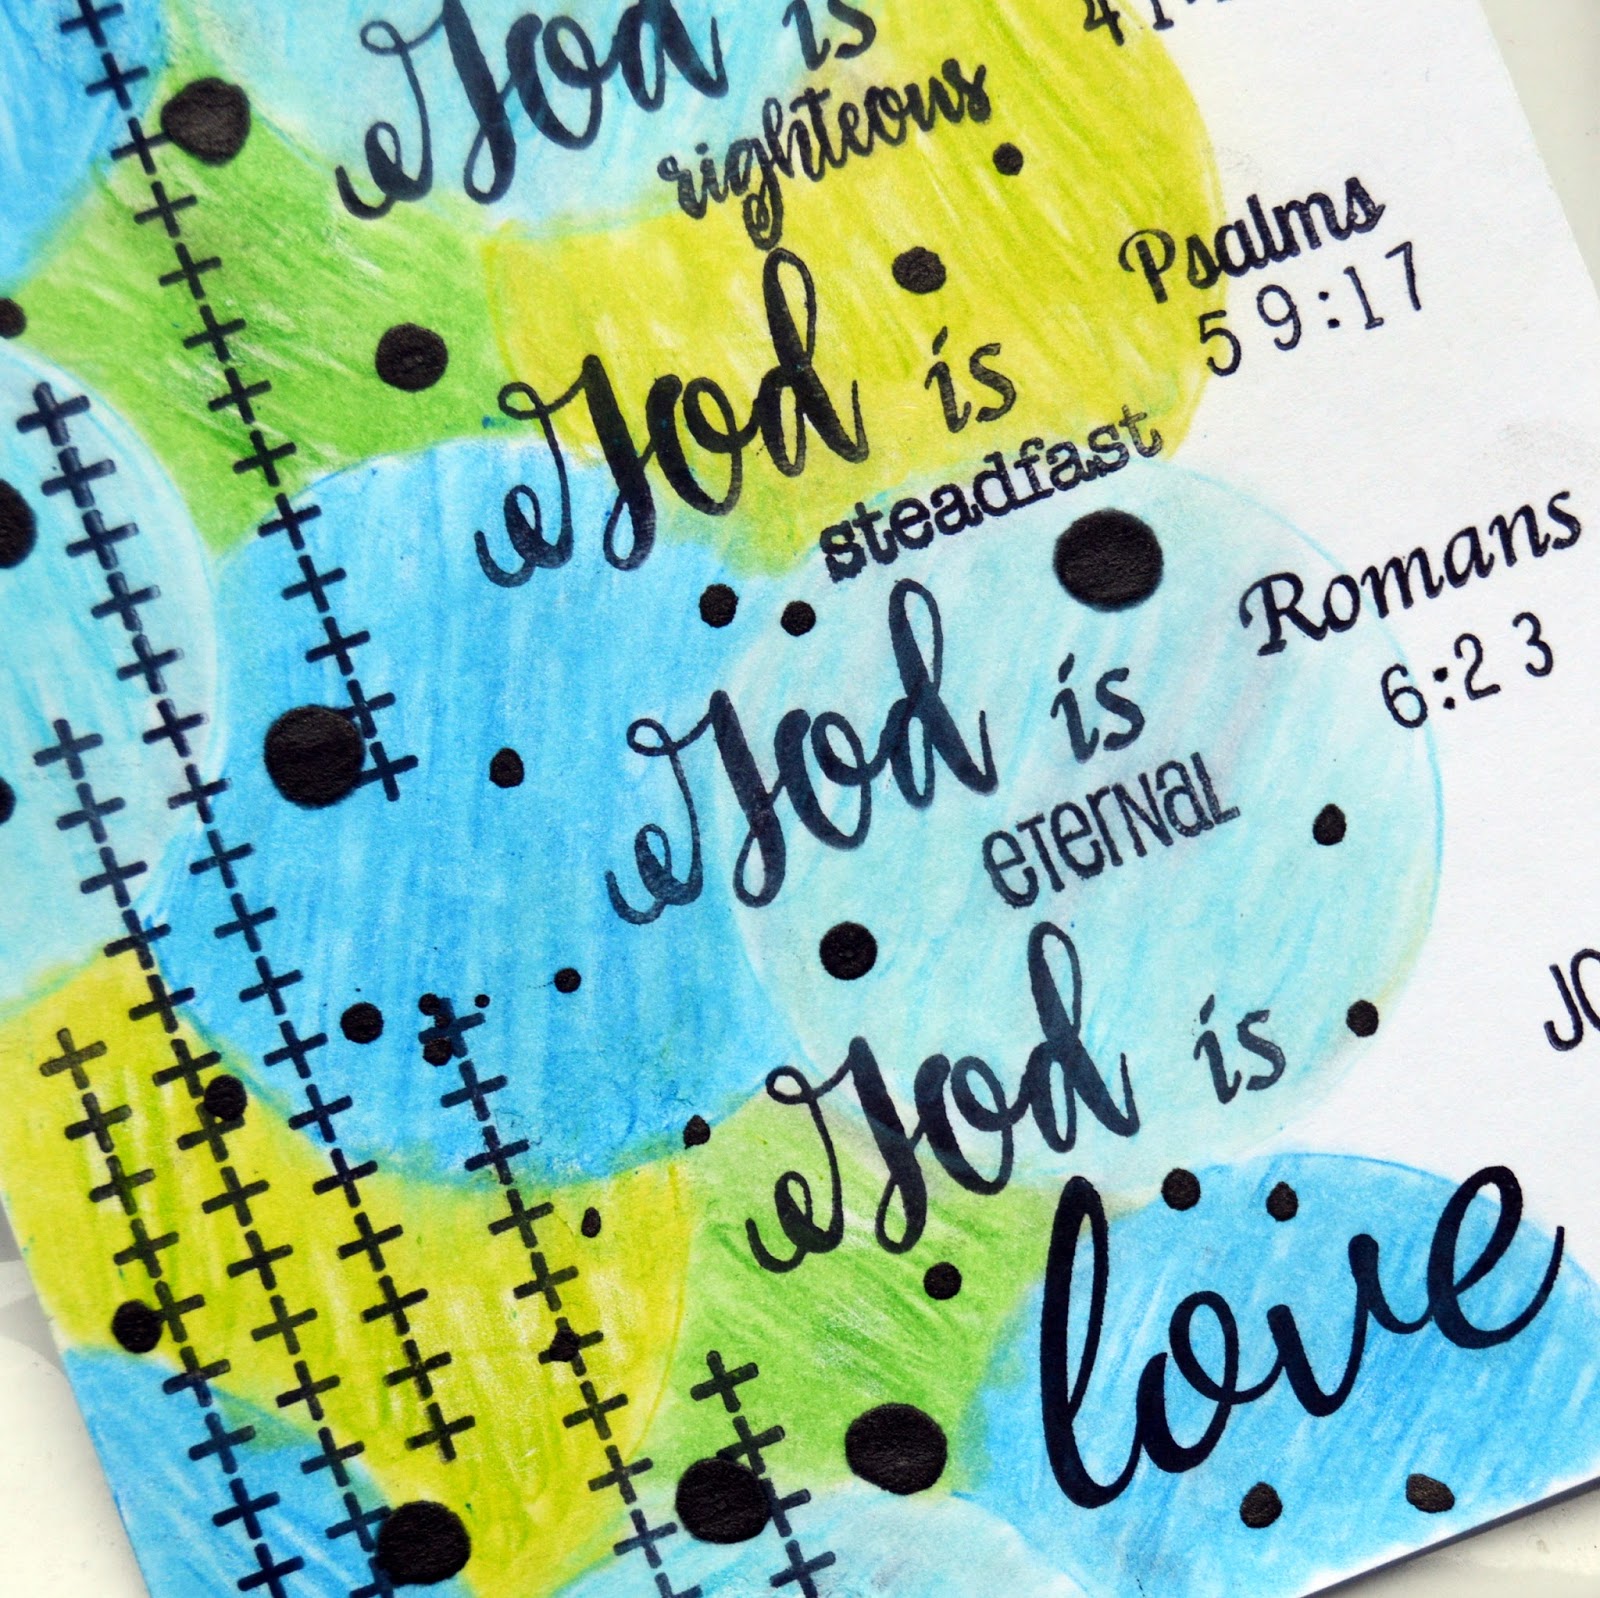 God is
righteous
Psalms
59:17
God is
steadfast
Romans
6:23
God is
eternal
God is
love